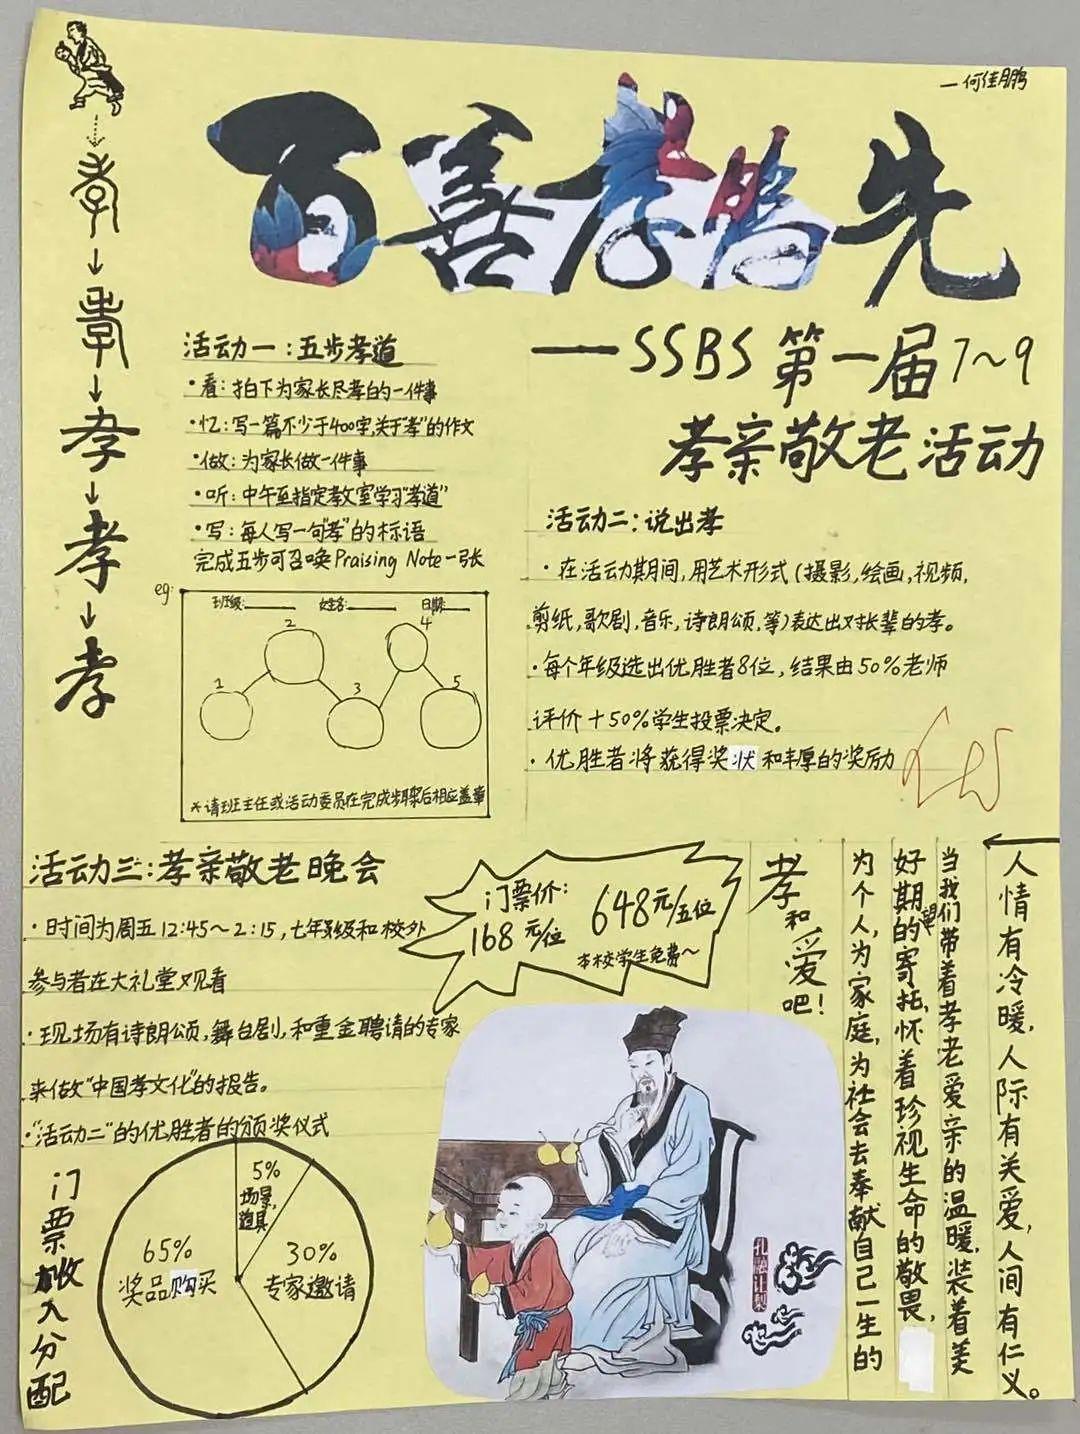 —何佳鹏
百善孝为先
孝
孝
孝
孝
孝
——SSBS第一届7~9
孝亲敬老活动
活动一:五步孝道
·看:拍下为家长尽孝的一件事
·忆:写一篇不少于400字,关于“孝”的作文
·做:为家长做一件事
·听:中午至指定教室学习“孝道”
·写:每人写一句“孝”的标语
完成五步可召唤Praising Note一张
eg:
班级: 姓名: 日期:
1
2
3
4
5
*请班主任或活动委员在完成步骤后相应盖章
活动二:说出孝
·在活动期间,用艺术形式(摄影,绘画,视频,
剪纸,歌剧,音乐,诗朗颂,等)表达出对长辈的孝。
·每个年级选出优胜者8位,结果由50%老师
评价+50%学生投票决定。
·优胜者将获得奖状和丰厚的奖励
活动三:孝亲敬老晚会
·时间为周五12:45~2:15,七年级和校外
参与者在大礼堂观看
·现场有诗朗颂,舞台剧,和重金聘请的专家
来做“中国孝文化”的报告。
·“活动二”的优胜者的颁奖仪式
门票价:
168元/位
648元/五位
本校学生免费~
门票收入分配
5%
场景,
道具
30%
专家邀请
65%
奖品购买
孔融让梨
人情有冷暖,人际有关爱,人间有仁义。
当我们带着孝老爱亲的温暖,装着美
好期望的寄托,怀着珍视生命的敬畏,
为个人,为家庭,为社会去奉献自己一生的
孝和爱吧!